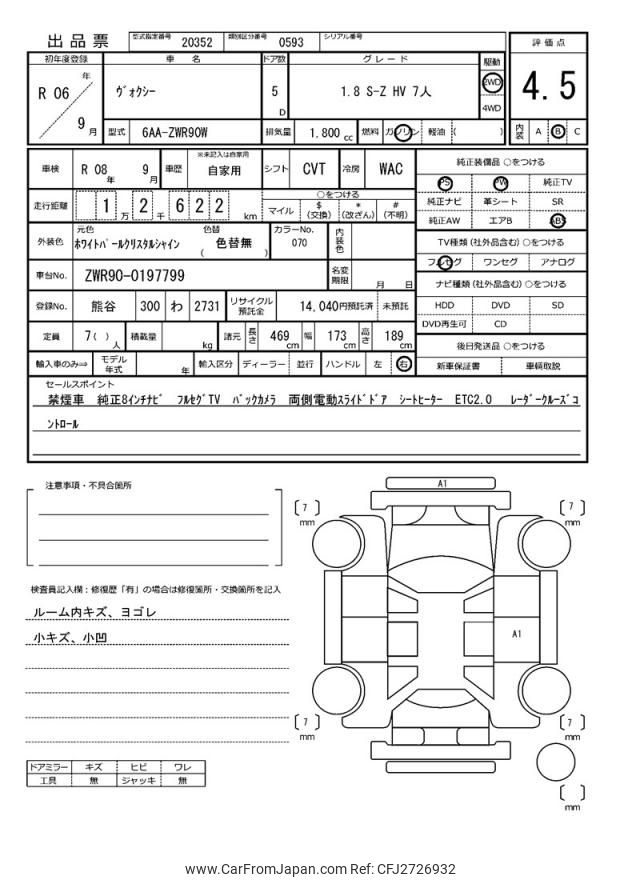 出品票 型式指定番号 20352 類別区分番号 0593 シリアル番号
評価点
初年度登録 車名 ドア数 グレード 駆動
R 06 年 9 月
ヴォクシー 5 D 1.8 S-Z HV 7人 2WD 4WD
4.5
型式 6AA-ZWR90W 排気量 1,800 cc 燃料 ガソリン 軽油 ( )
内装 A B C
車検 R 08 年 9 月 車歴 ※未記入は自家用 自家用 シフト CVT 冷房 WAC
純正装備品 ○をつける
PS PW 純正TV
純正ナビ 革シート SR
純正AW エアB ABS
走行距離 1 万 2 千 6 2 2 km
○をつける
マイル $ (交換) * (改ざん) # (不明)
外装色 元色 ホワイトパールクリスタルシャイン 色替 ( 色替無 ) カラーNo. 070 内装色
TV種類 (社外品含む) ○をつける
フルセグ ワンセグ アナログ
車台No. ZWR90-0197799 名変期限 月 日
ナビ種類 (社外品含む) ○をつける
HDD DVD SD
DVD再生可 CD
登録No. 熊谷 300 わ 2731 リサイクル預託金 14,040円預託済 未預託
定員 7( ) 人 積載量 kg 諸元 長さ 469 cm 幅 173 cm 高さ 189 cm
後日発送品 ○をつける
新車保証書 車輌取説
輸入車のみ⇒ モデル年式 年 輸入区分 ディーラー 並行 ハンドル 左 右
セールスポイント
禁煙車 純正8インチナビ フルセグTV バックカメラ 両側電動スライドドア シートヒーター ETC2.0 レーダークルーズコ
ントロール
注意事項・不具合箇所
検査員記入欄:修復歴「有」の場合は修復箇所・交換箇所を記入
ルーム内キズ、ヨゴレ
小キズ、小凹
ドアミラー キズ ヒビ ワレ
工具 無 ジャッキ 無
A1
[ 7 ] mm
[ 7 ] mm
A1
[ 7 ] mm
[ 7 ] mm
[ ] mm
www.CarFromJapan.com Ref: CFJ2726932